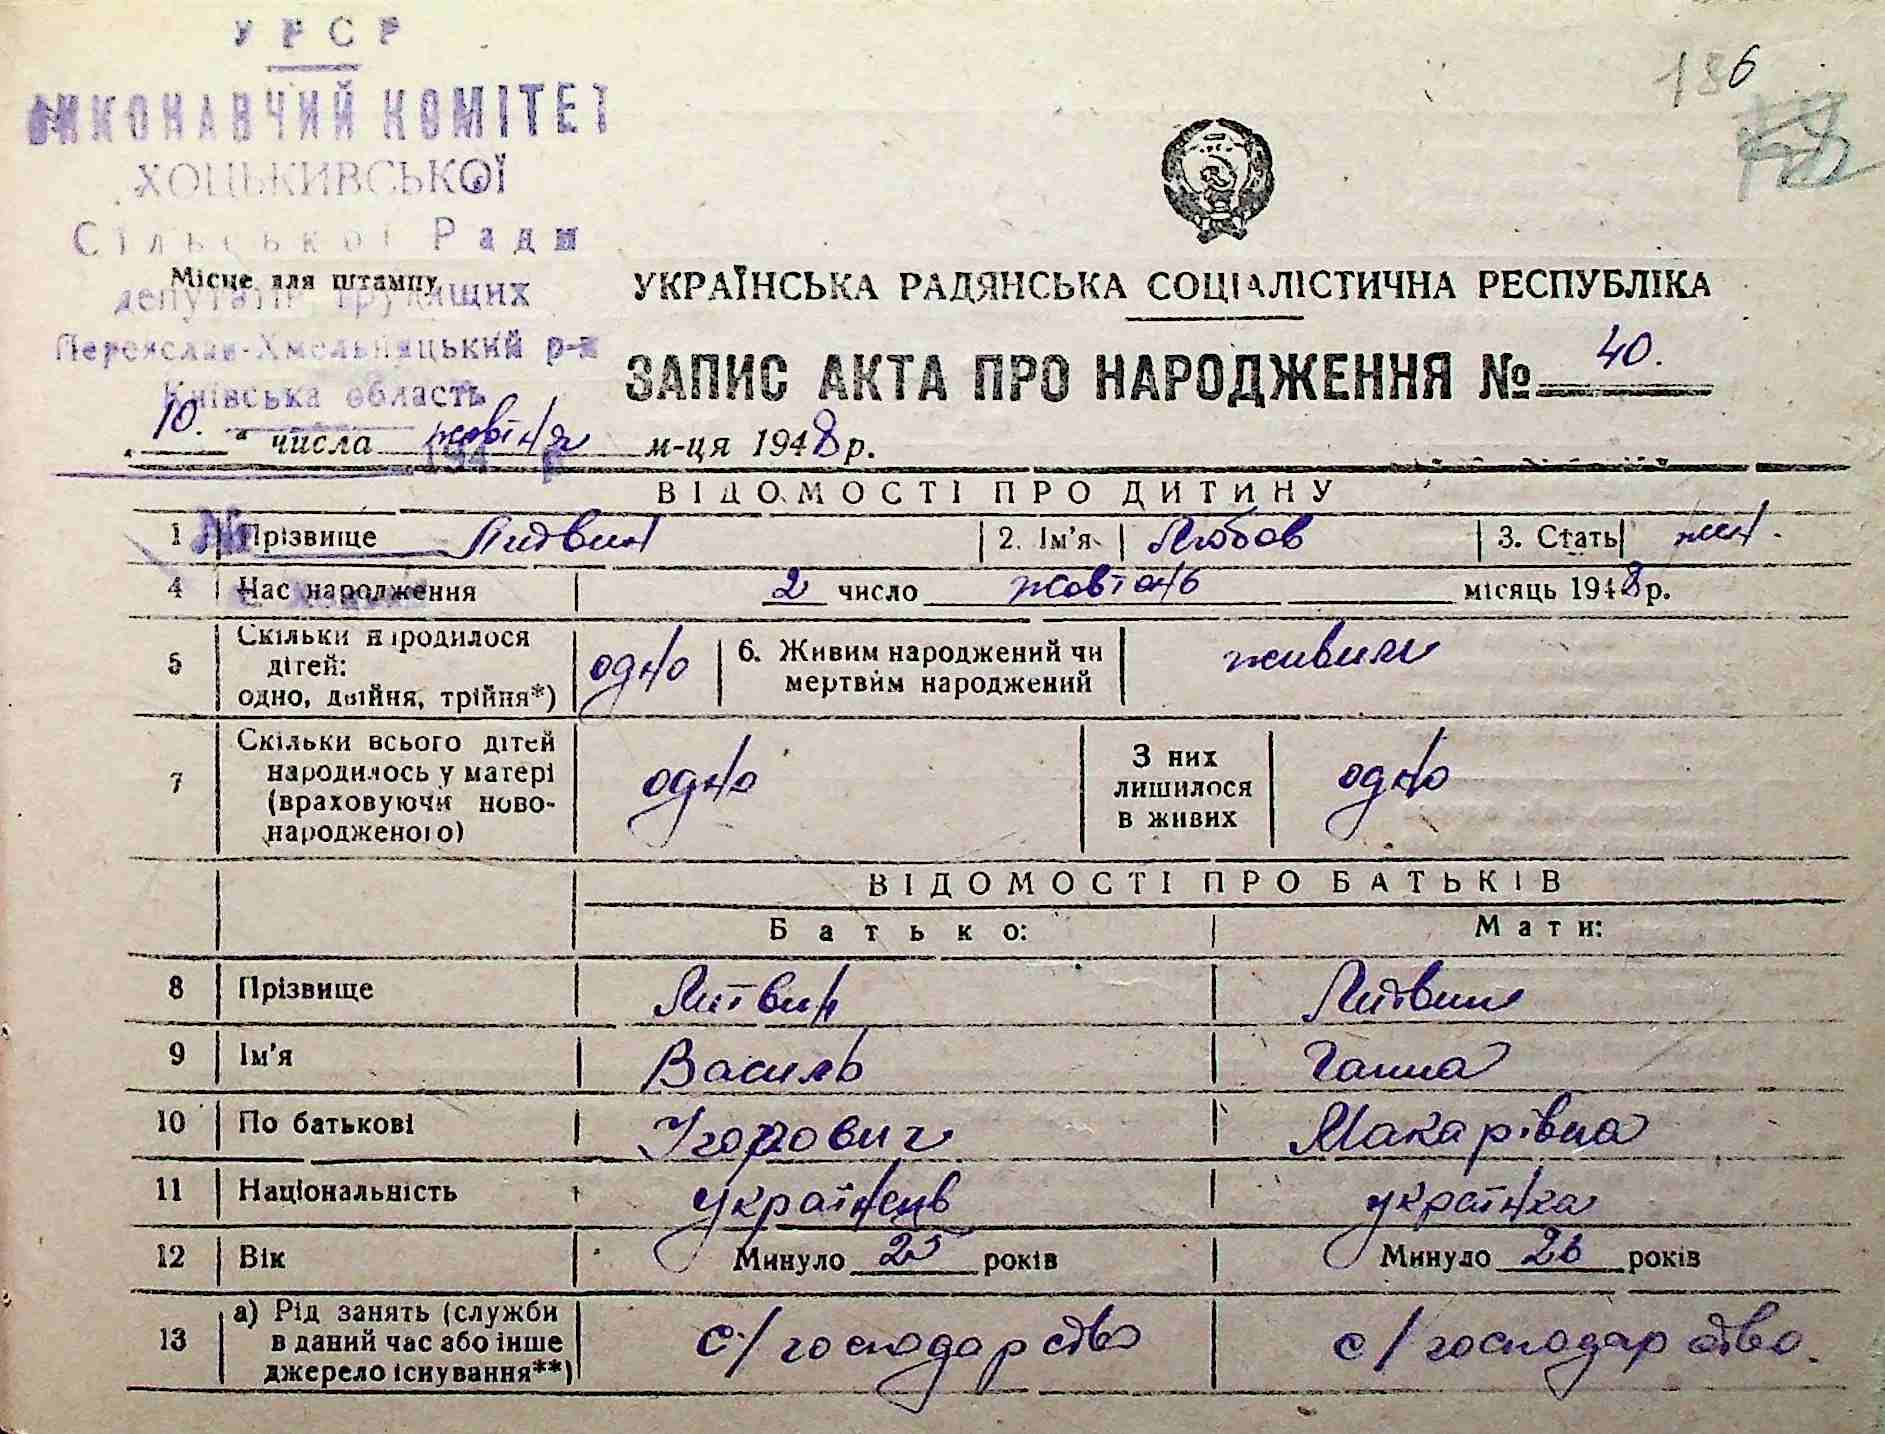 УРСР
136
ВИКОНАВЧИЙ КОМІТЕТ
ХОЦЬКИВСЬКОЇ
Сільської Ради
Місце для штампу
депутатів трудящих
Переяслав-Хмельницький р-н
Київська область
УКРАЇНСЬКА РАДЯНСЬКА СОЦІАЛІСТИЧНА РЕСПУБЛІКА
ЗАПИС АКТА ПРО НАРОДЖЕННЯ № 40.
„10." числа жовтня м-ця 1948 р.
ВІДОМОСТІ ПРО ДИТИНУ
1 Прізвище Литвин 2. Ім'я Любов 3. Стать жін.
4 Час народження 2 число жовтень місяць 1948 р.
5 Скільки народилося дітей: одно, двійня, трійня*) одно 6. Живим народжений чи мертвим народжений живим
7 Скільки всього дітей народилось у матері (враховуючи новонародженого) одно З них лишилося в живих одно
ВІДОМОСТІ ПРО БАТЬКІВ
Батько: Мати:
8 Прізвище Литвин Литвин
9 Ім'я Василь Ганна
10 По батькові Ігорович Макарівна
11 Національність українець українка
12 Вік Минуло 25 років Минуло 26 років
13 а) Рід занять (служби в даний час або інше джерело існування**) с/господарство с/господарство.